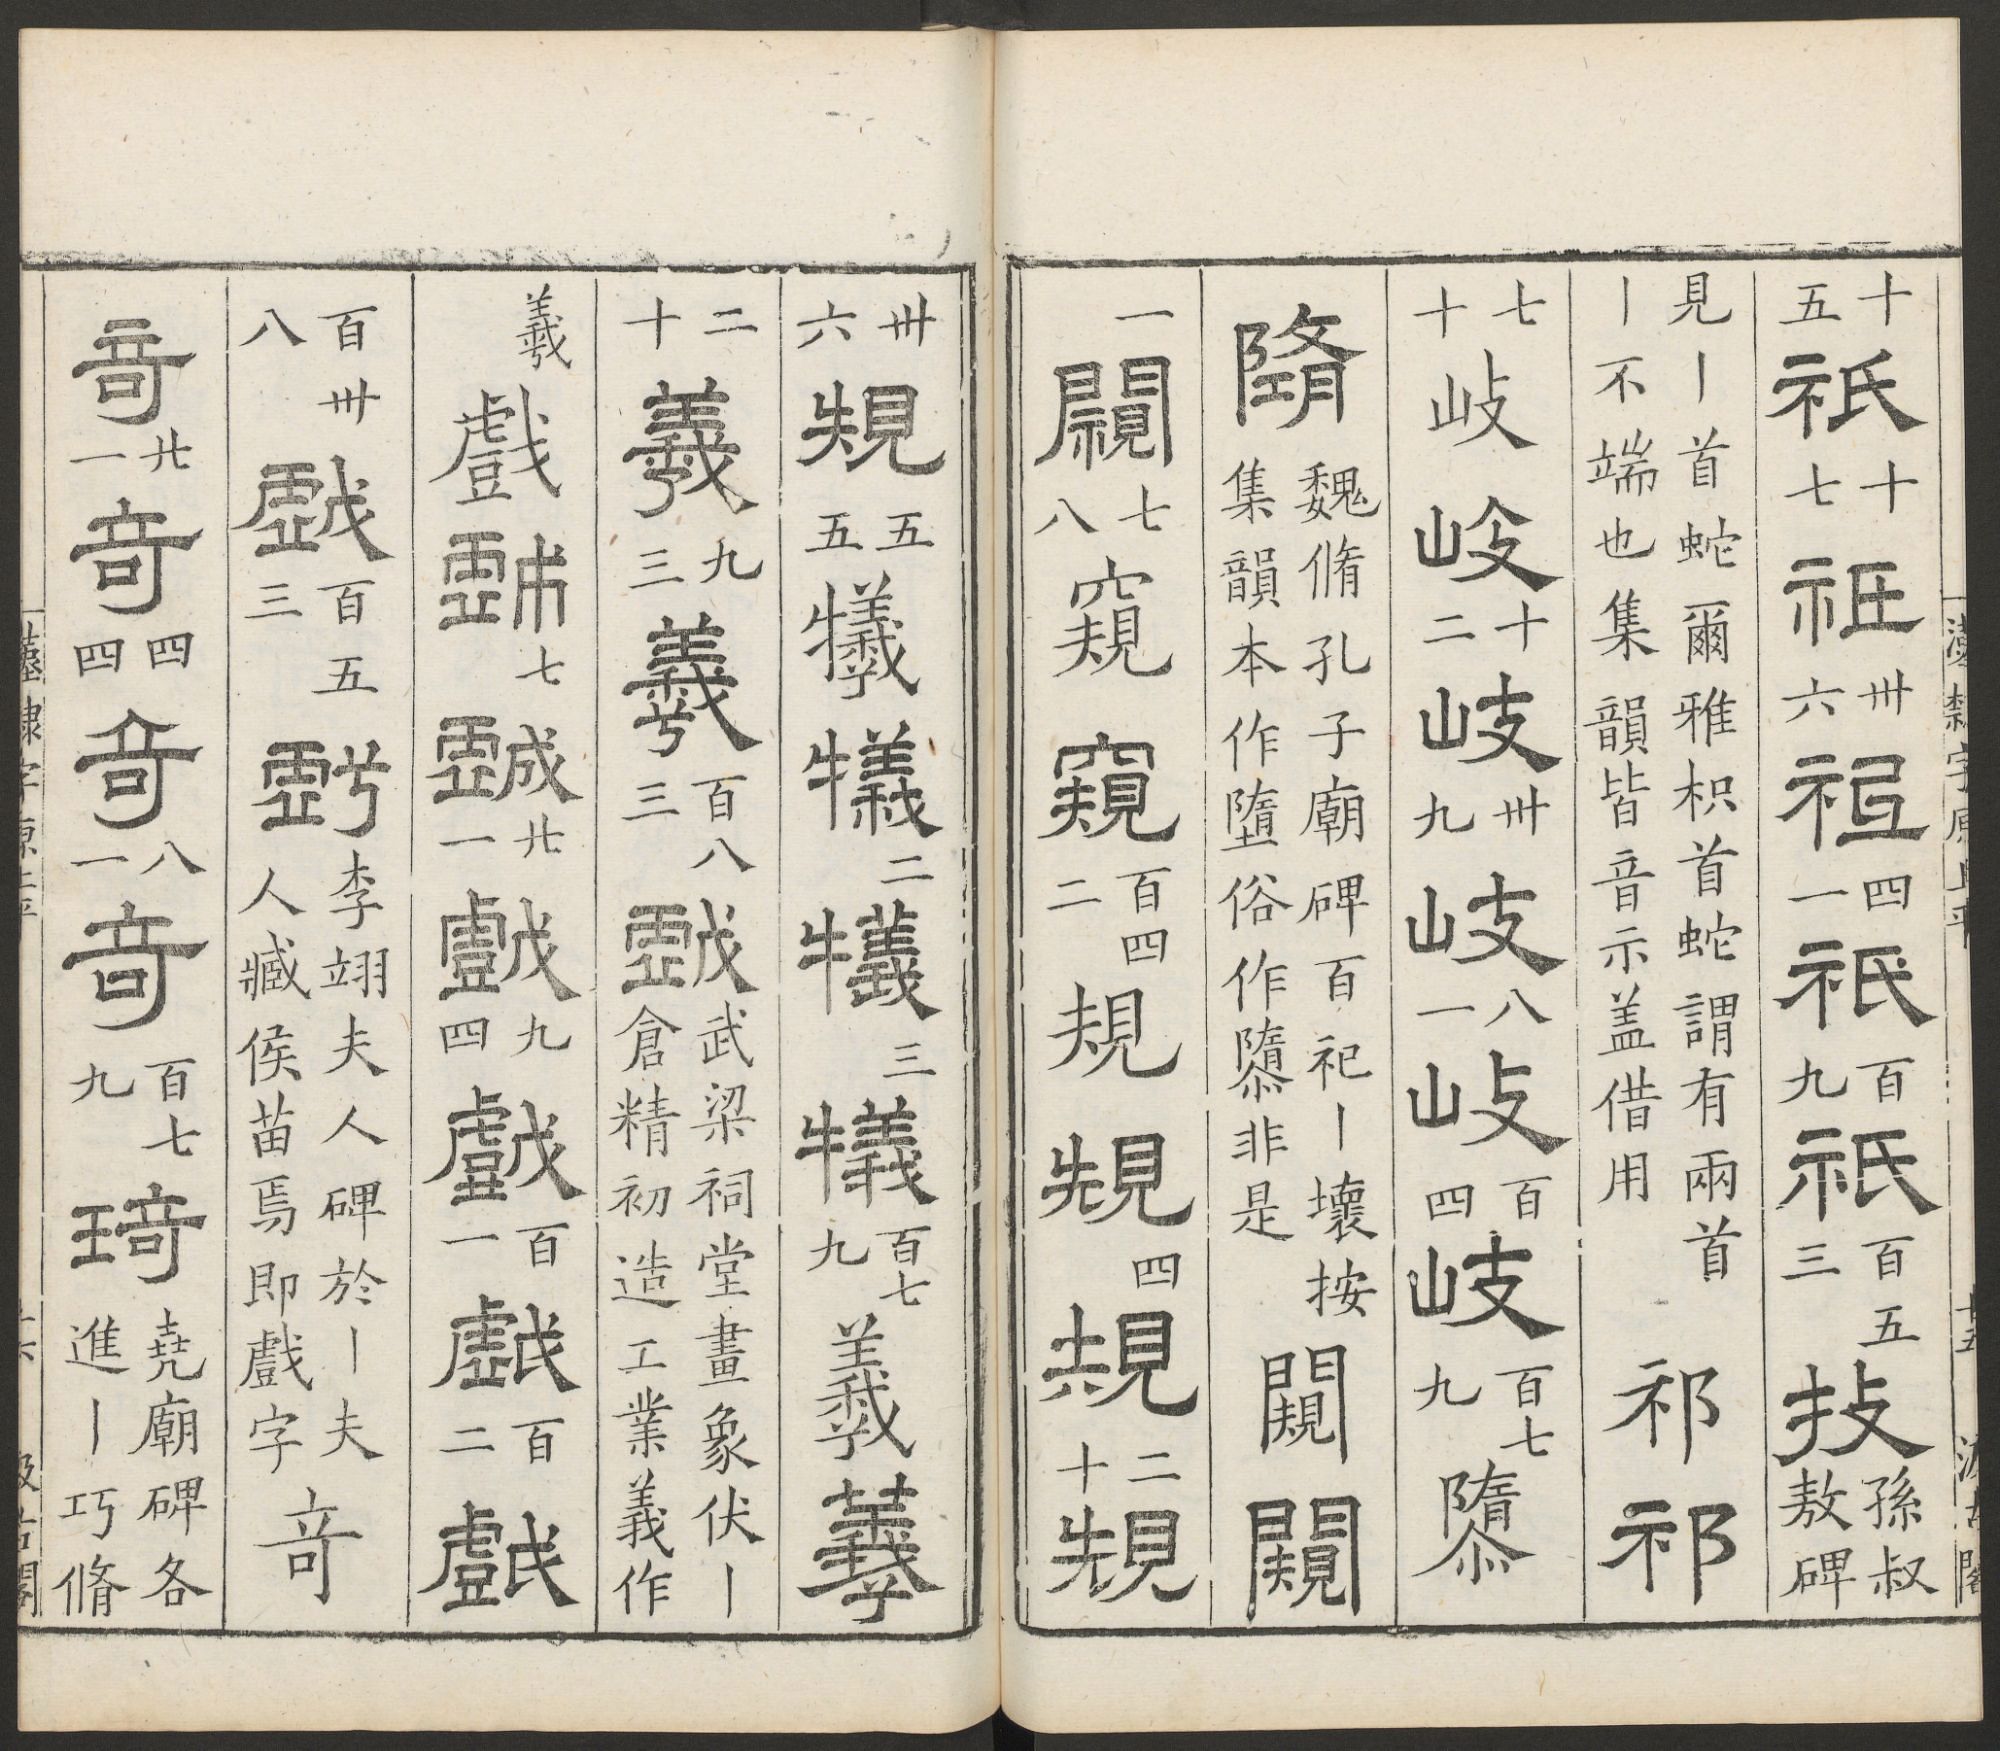 漢隸字原上平 十五 汲古閣
十五祇十七祇卅六祇四一祇百九祇百五三技孫叔敖碑
見丨首蛇爾雅枳首蛇謂有兩首丨不端也集韻皆音示盖借用祁祁
七十岐岐十二岐卅九岐八一岐百四岐百七九隳
隋魏脩孔子廟碑百祀丨壞按集韻本作墮俗作隳非是闚闚
一闚七八窺窺百四二規規四規二十規
卅六規五五犧犧二犧三犧百七九羲羲
二十羲九三羲百八三戲武梁祠堂畫象伏丨倉精初造工業義作
羲戲戲七戲廿一戲廿九四戲百一戲百二戲
百卅八戲百五三戲李翊夫人碑於丨夫人臧侯苗焉即戲字奇
奇廿一奇四四奇八一奇百七九琦堯廟碑各進丨巧脩
漢隸字原上平 十六 汲古閣